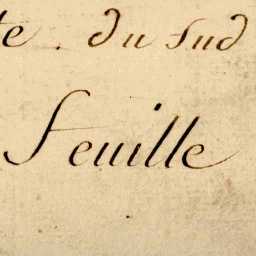 te. du Sud
feuille